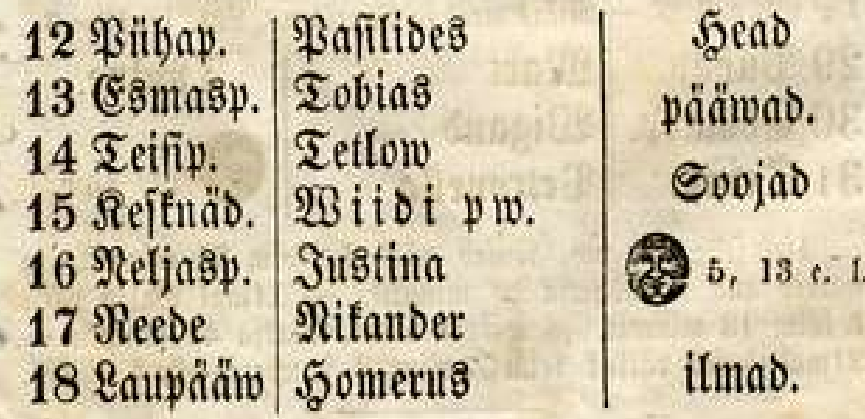 12 Pühap. Pasilides Head
13 Esmasp. Tobias pääwad.
14 Teisip. Tetlow Soojad
15 Kesknäd. Wiidi pw.
16 Neljasp. Justina 5, 13 e. l.
17 Reede Nikander
18 Laupääw Homerus ilmad.